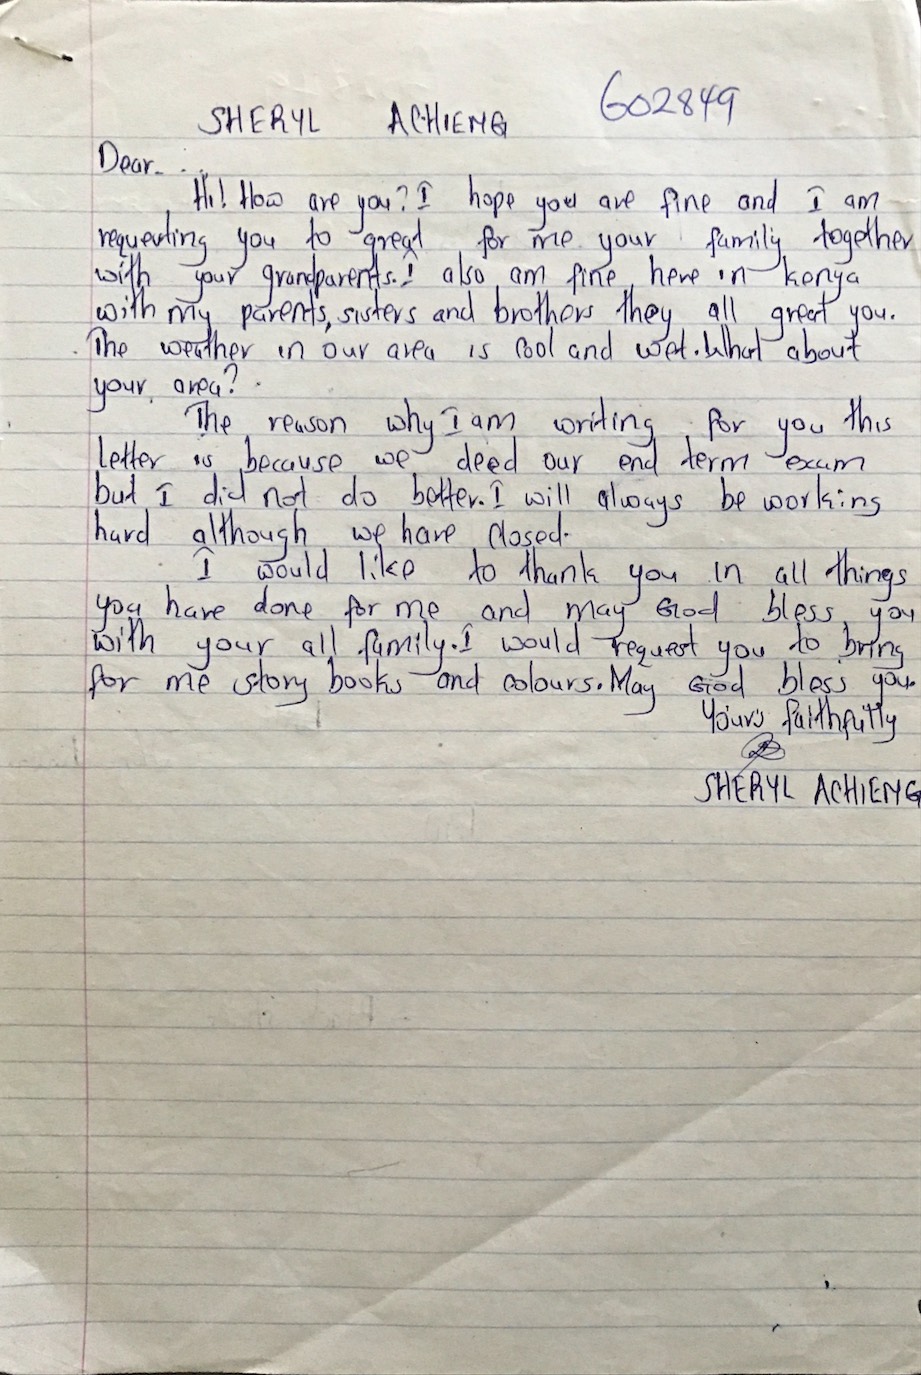 SHERYL ACHIENG G02849
Dear....
Hi! How are you? I hope you are fine and I am
requesting you to great for me your family together
with your grandparents. I also am fine here in kenya
with my parents, sisters and brothers they all great you.
The weather in our area is cool and wet. What about
your area?.
The reason why I am writing for you this
letter is because we deed our end term exam
but I did not do better. I will always be working
hard although we have closed.
I would like to thank you in all things
you have done for me and may God bless you
with your all family. I would request you to bring
for me story books and colours. May God bless you.
Yours faithfully
SHERYL ACHIENG